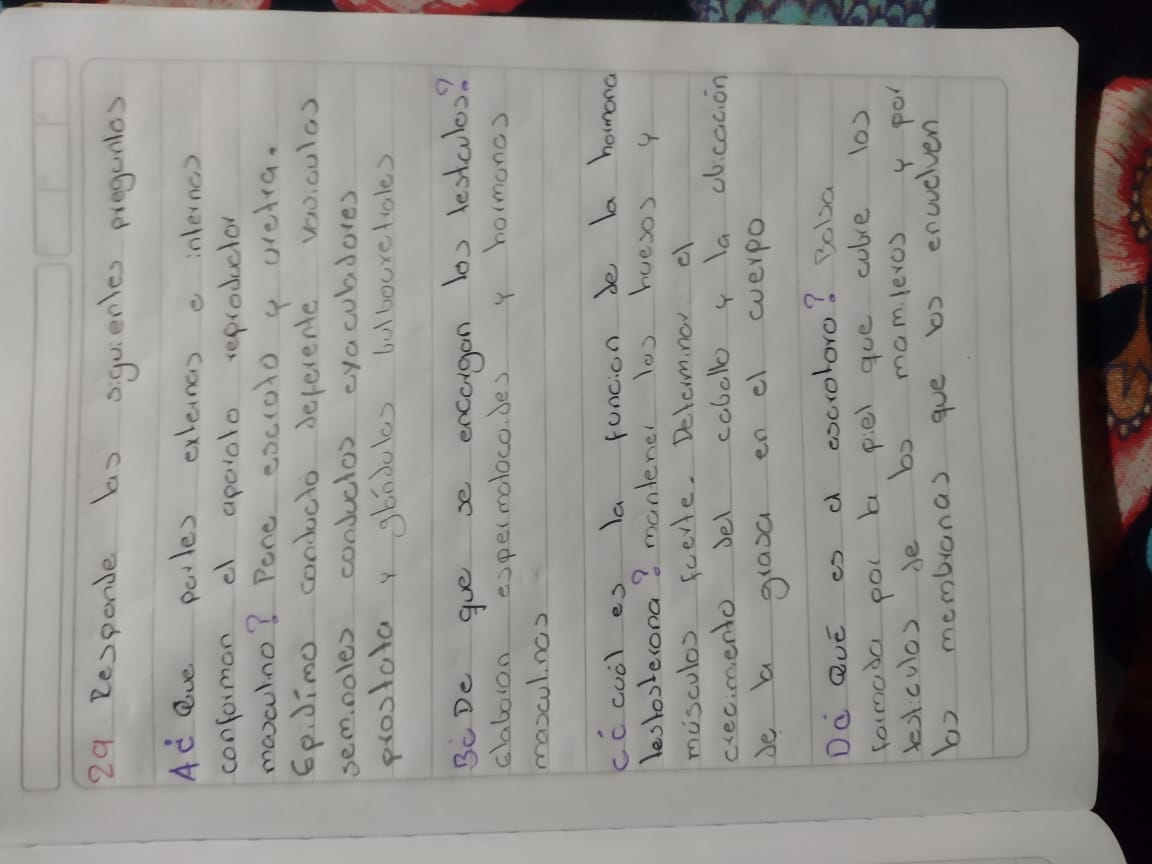 29 Responde las siguientes preguntas
A¿ Que partes externas e internas
conforman el aparato reproductor
masculino? Pene escroto y uretra.
Epidimo conducto deferente vasiculas
seminales conductos eyaculadores
prostata y glándulas bulbouretrales
B¿ De que se encargan los testiculos?
elaboran espermatocoides y hormonas
masculinas
C¿ cuál es la funcion de la hormona
testosterona? mantener los huesos y
músculos fuerte. Determinar el
crecimiento del cabello y la ubicación
de la grasa en el cuerpo
D¿ Qué es el escrotoro? Bolsa
formada por la piel que cubre los
testiculos de los mamiferos y por
las membranas que los envuelven